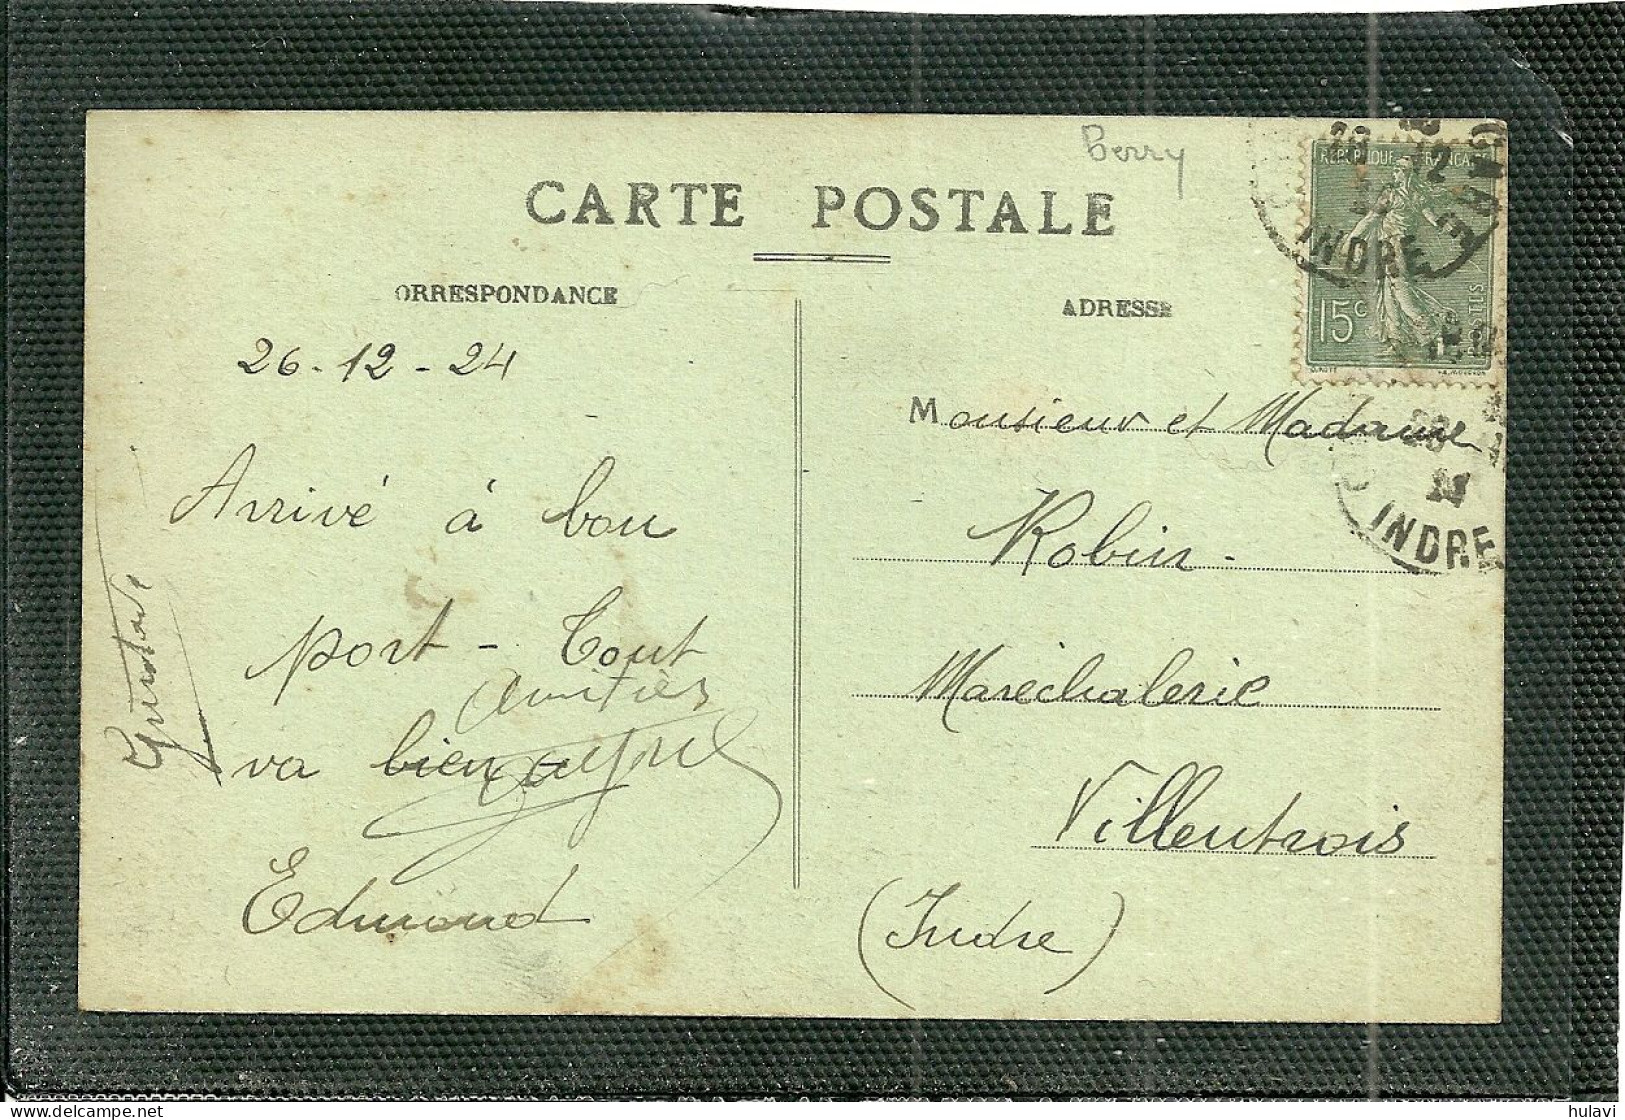 Berry
CARTE POSTALE
ORRESPONDANCE
ADRESSE
RÉPUBLIQUE FRANÇAISE
15c
POSTES
INDRE
INDRE
26-12-24
Arrivé à bon
port - Tout
va bien
Amitiés
Edmond
Monsieur et Madame
Robin -
Maréchalerie
Villentrois
(Indre)
hulavi